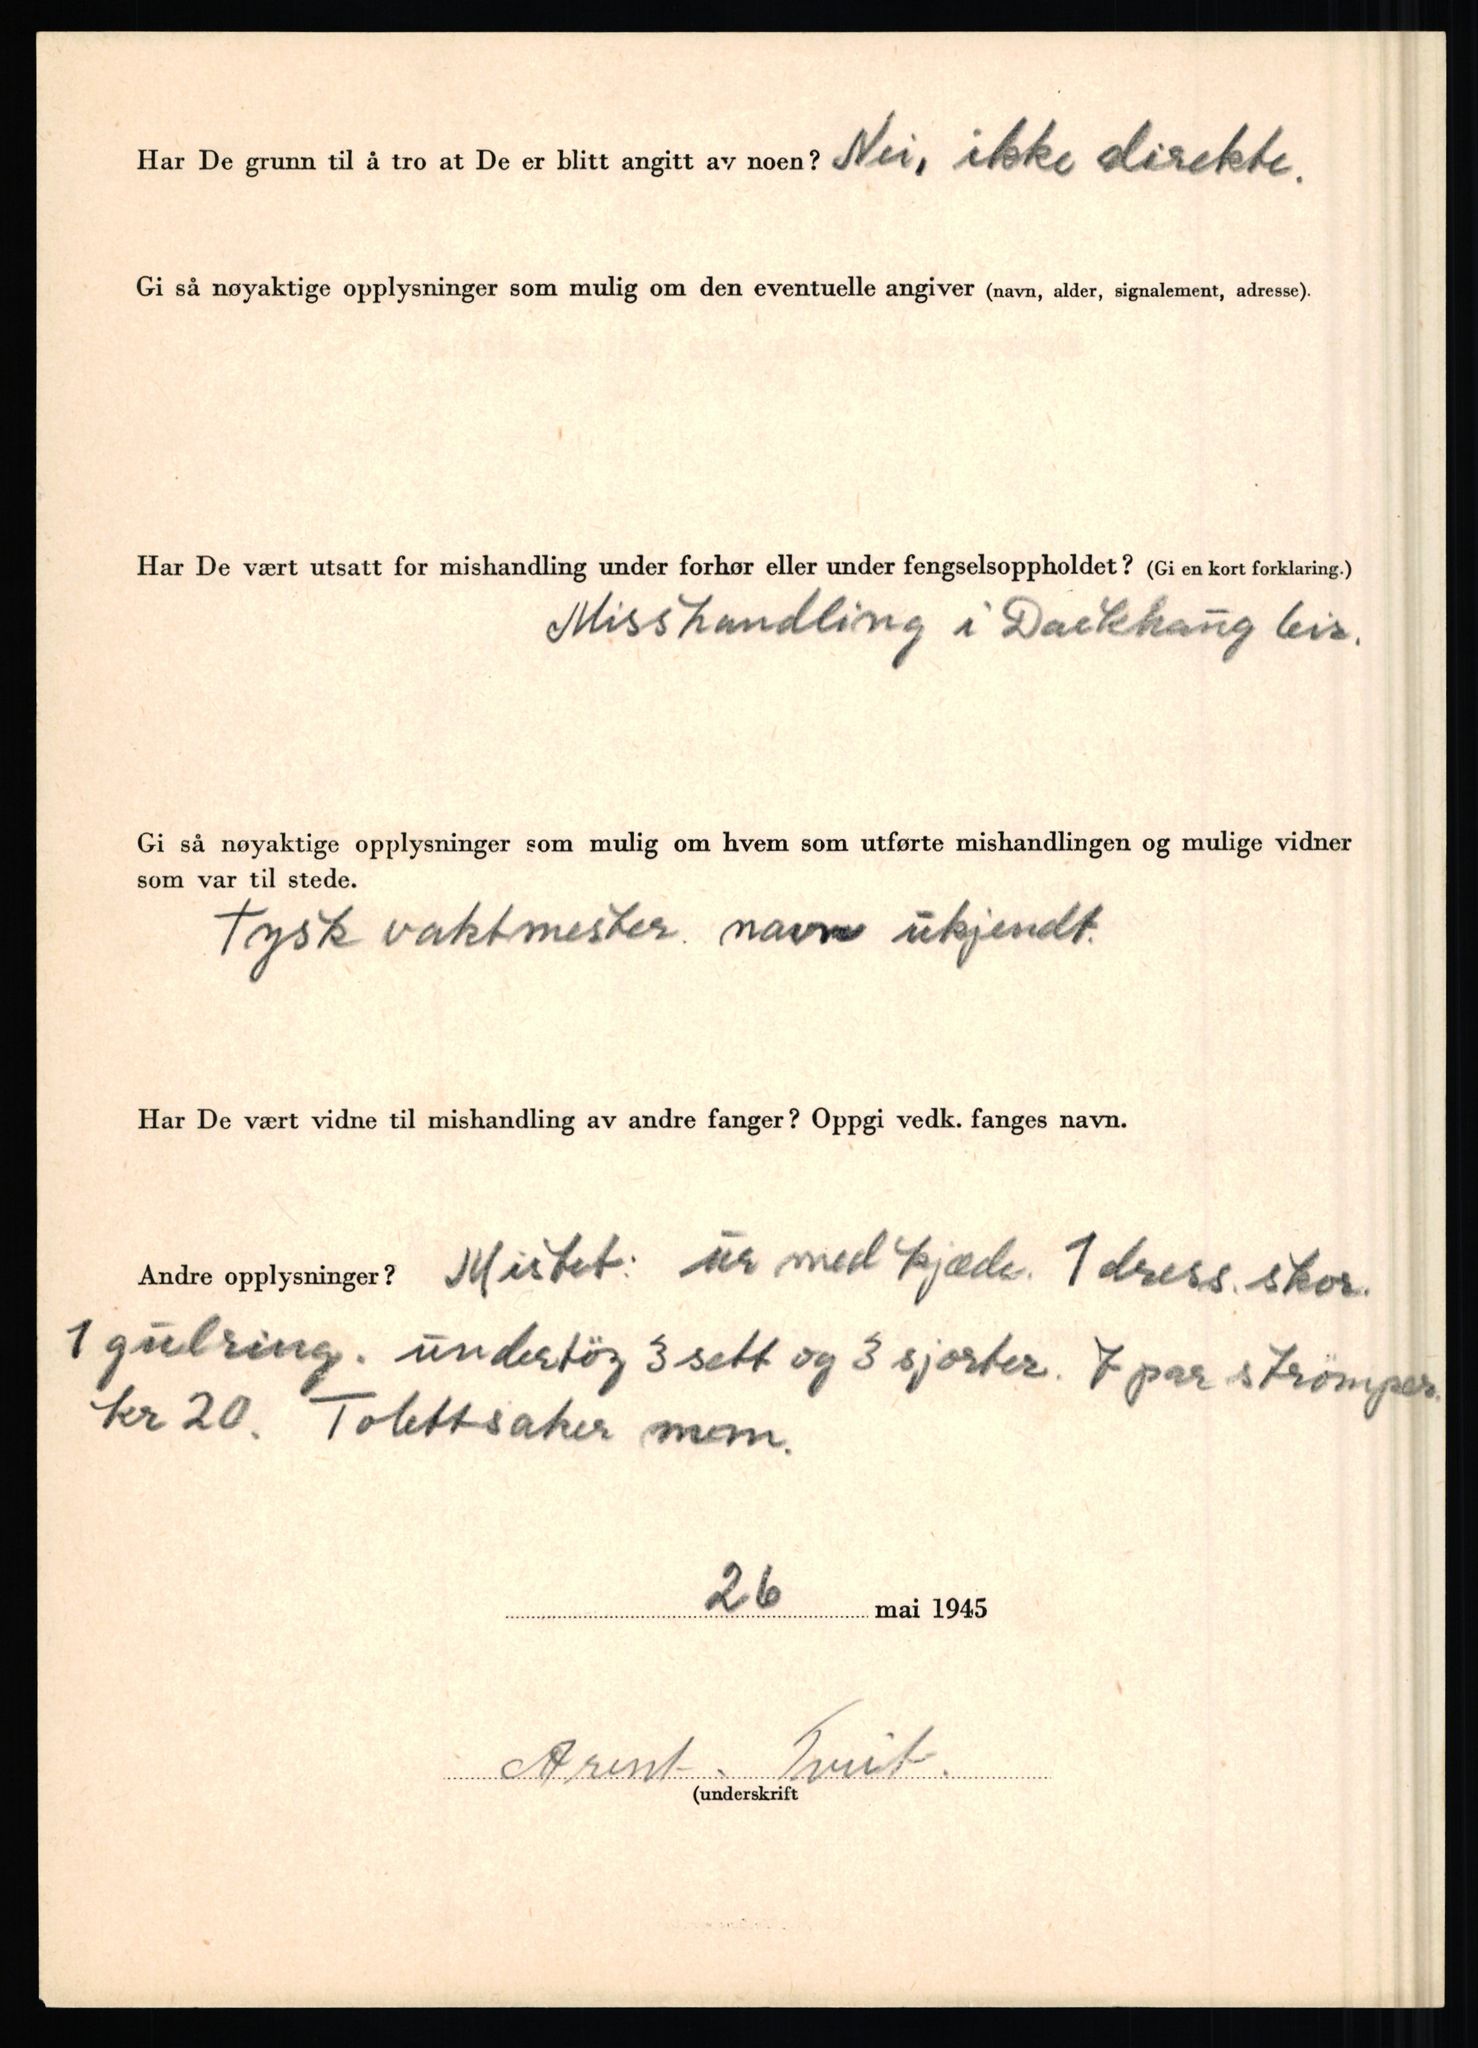 Har De grunn til å tro at De er blitt angitt av noen? Nei, ikke direkte.
Gi så nøyaktige opplysninger som mulig om den eventuelle angiver (navn, alder, signalement, adresse).
Har De vært utsatt for mishandling under forhør eller under fengselsoppholdet? (Gi en kort forklaring.)
Misshandling i Dackhaug leir.
Gi så nøyaktige opplysninger som mulig om hvem som utførte mishandlingen og mulige vidner
som var til stede.
Tysk vaktmester. navn ukjendt.
Har De vært vidne til mishandling av andre fanger? Oppgi vedk. fanges navn.
Andre opplysninger? Mistet: ur med kjæde. 1 dress. skor.
1 gulring. undertöz 3 sett og 3 sjorter. 7 par strömper.
kr 20. Tolettsaker mm.
26 mai 1945
Arent. Tveit.
(underskrift